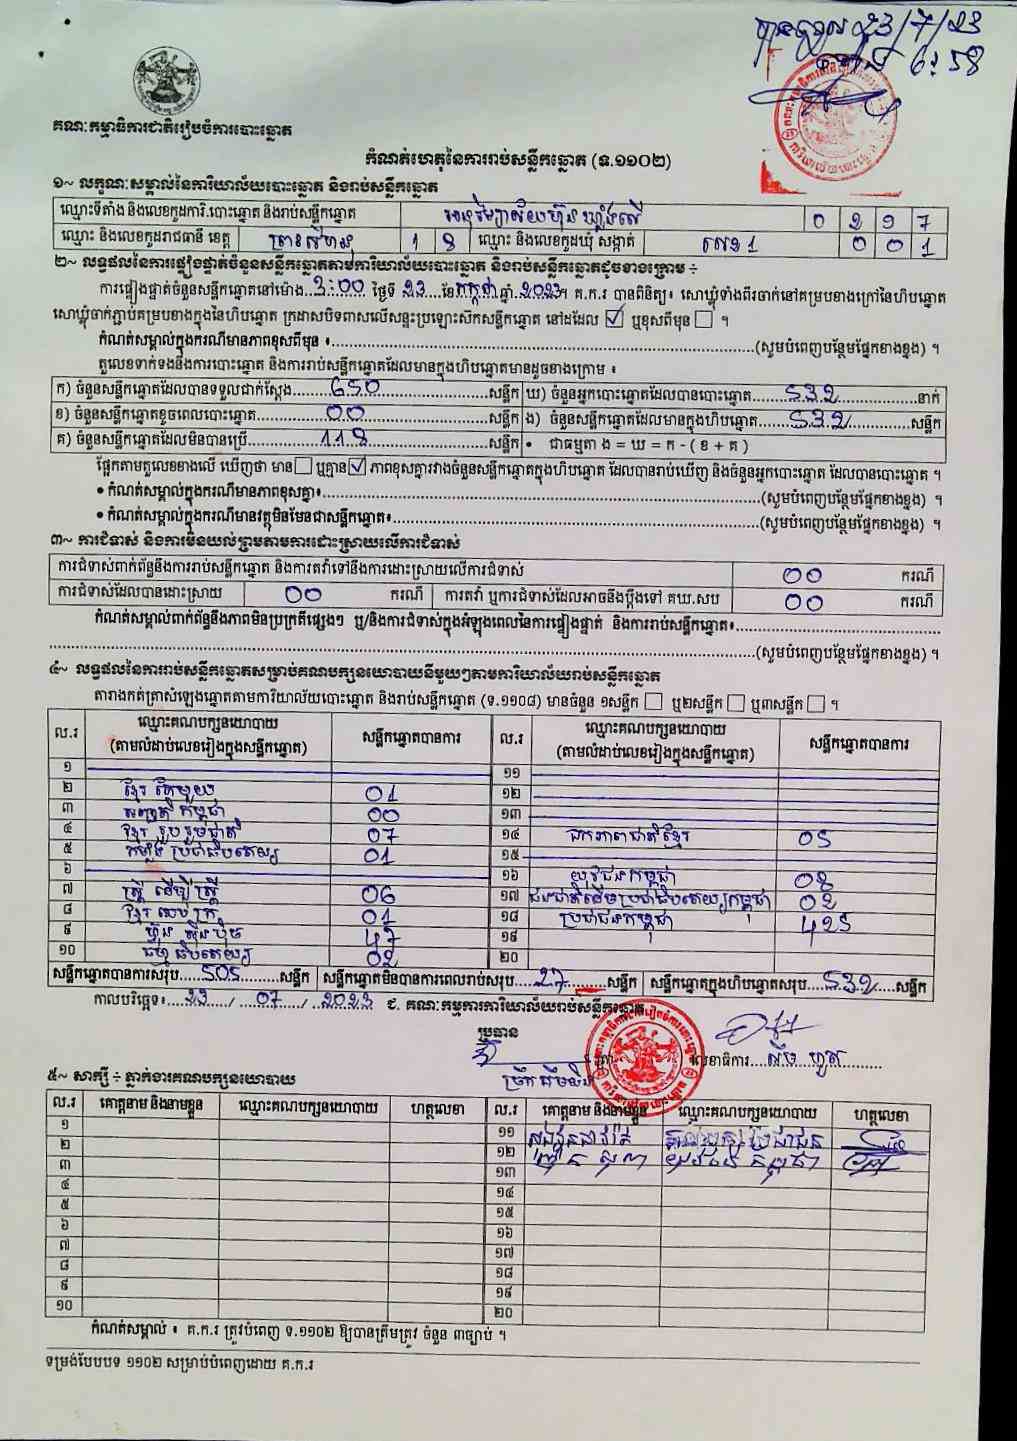 ៣/៧/២៣
៦:៥៨
គណៈកម្មាធិការជាតិរៀបចំការបោះឆ្នោត
កំណត់ហេតុនៃការរាប់សន្លឹកឆ្នោត (ទ.១១០២)
១~ លក្ខណៈសម្គាល់នៃការិយាល័យបោះឆ្នោត និងរាប់សន្លឹកឆ្នោត
ឈ្មោះទីតាំង និងលេខកូដការិ.បោះឆ្នោត និងរាប់សន្លឹកឆ្នោត 0 2 9 7
ឈ្មោះ និងលេខកូដរាជធានី ខេត្ត ព្រះសីហនុ 1 8 ឈ្មោះ និងលេខកូដឃុំ សង្កាត់ លេខ1 0 0 1
២~ លទ្ធផលនៃការផ្ទៀងផ្ទាត់ចំនួនសន្លឹកឆ្នោតតាមការិយាល័យបោះឆ្នោត និងរាប់សន្លឹកឆ្នោតដូចខាងក្រោម ÷
ការផ្ទៀងផ្ទាត់ចំនួនសន្លឹកឆ្នោតនៅម៉ោង 3:00 ថ្ងៃទី 23 ខែ កក្កដា ឆ្នាំ 2023។ គ.ក.រ បានពិនិត្យ៖ សោឃ្លុំទាំងពីរចាក់នៅគម្របខាងក្រៅនៃហិបឆ្នោត
សោឃ្លុំចាក់ភ្ជាប់គម្របខាងក្នុងនៃហិបឆ្នោត ក្រដាសបិទពាសលើសន្ទះប្រឡោះស៊កសន្លឹកឆ្នោត នៅដដែល ☑ ឬខុសពីមុន ☐ ។
កំណត់សម្គាល់ក្នុងករណីមានភាពខុសពីមុន ៖ (សូមបំពេញបន្ថែមផ្នែកខាងខ្នង) ។
តួលេខទាក់ទងនឹងការបោះឆ្នោត និងការរាប់សន្លឹកឆ្នោតដែលមានក្នុងហិបឆ្នោតមានដូចខាងក្រោម ៖
ក) ចំនួនសន្លឹកឆ្នោតដែលបានទទួលជាក់ស្តែង 650 សន្លឹក ឃ) ចំនួនអ្នកបោះឆ្នោតដែលបានបោះឆ្នោត 532 នាក់
ខ) ចំនួនសន្លឹកឆ្នោតខូចពេលបោះឆ្នោត 00 សន្លឹក ង) ចំនួនសន្លឹកឆ្នោតដែលមានក្នុងហិបឆ្នោត 532 សន្លឹក
គ) ចំនួនសន្លឹកឆ្នោតដែលមិនបានប្រើ 118 សន្លឹក • ជាធម្មតា ង = ឃ = ក - ( ខ + គ )
ផ្អែកតាមតួលេខខាងលើ ឃើញថា មាន ☐ ឬគ្មាន ☑ ភាពខុសគ្នារវាងចំនួនសន្លឹកឆ្នោតក្នុងហិបឆ្នោត ដែលបានរាប់ឃើញ និងចំនួនអ្នកបោះឆ្នោត ដែលបានបោះឆ្នោត ។
• កំណត់សម្គាល់ក្នុងករណីមានភាពខុសគ្នា៖ (សូមបំពេញបន្ថែមផ្នែកខាងខ្នង) ។
• កំណត់សម្គាល់ក្នុងករណីមានវត្ថុមិនមែនជាសន្លឹកឆ្នោត៖ (សូមបំពេញបន្ថែមផ្នែកខាងខ្នង) ។
៣~ ការជំទាស់ និងការមិនយល់ព្រមតាមការដោះស្រាយលើការជំទាស់
ការជំទាស់ពាក់ព័ន្ធនឹងការរាប់សន្លឹកឆ្នោត និងការតវ៉ាទៅនឹងការដោះស្រាយលើការជំទាស់ 00 ករណី
ការជំទាស់ដែលបានដោះស្រាយ 00 ករណី ការតវ៉ា ឬការជំទាស់ដែលអាចនឹងប្តឹងទៅ គឃ.សប 00 ករណី
កំណត់សម្គាល់ពាក់ព័ន្ធនឹងភាពមិនប្រក្រតីផ្សេងៗ ឬ/និងការជំទាស់ក្នុងអំឡុងពេលនៃការផ្ទៀងផ្ទាត់ និងការរាប់សន្លឹកឆ្នោត៖
(សូមបំពេញបន្ថែមផ្នែកខាងខ្នង) ។
៤~ លទ្ធផលនៃការរាប់សន្លឹកឆ្នោតសម្រាប់គណបក្សនយោបាយនីមួយៗតាមការិយាល័យរាប់សន្លឹកឆ្នោត
តារាងកត់ត្រាសំឡេងឆ្នោតតាមការិយាល័យបោះឆ្នោត និងរាប់សន្លឹកឆ្នោត (ទ.១១០៨) មានចំនួន ១សន្លឹក ☐ ឬ២សន្លឹក ☐ ឬ៣សន្លឹក ☐ ។
ល.រ ឈ្មោះគណបក្សនយោបាយ (តាមលំដាប់លេខរៀងក្នុងសន្លឹកឆ្នោត) សន្លឹកឆ្នោតបានការ ល.រ ឈ្មោះគណបក្សនយោបាយ (តាមលំដាប់លេខរៀងក្នុងសន្លឹកឆ្នោត) សន្លឹកឆ្នោតបានការ
១ ១១
២ ខ្មែរតែមួយ 01 ១២
៣ សញ្ជាតិកម្ពុជា 00 ១៣
៤ ខ្មែររួបរួមជាតិ 07 ១៤ ឯកភាពជាតិខ្មែរ 05
៥ កម្លាំងប្រជាធិបតេយ្យ 01 ១៥
៦ ១៦ យុវជនកម្ពុជា 08
៧ ស្ត្រីដើម្បីស្ត្រី 06 ១៧ ជនជាតិដើមប្រជាធិបតេយ្យកម្ពុជា 02
៨ ខ្មែរឈប់ក្រ 01 ១៨ ប្រជាជនកម្ពុជា 425
៩ ហ្វ៊ុនស៊ិនប៉ិច 47 ១៩
១០ ធម្មាធិបតេយ្យ 02 ២០
សន្លឹកឆ្នោតបានការសរុប 505 សន្លឹក សន្លឹកឆ្នោតមិនបានការពេលរាប់សរុប 27 សន្លឹក សន្លឹកឆ្នោតក្នុងហិបឆ្នោតសរុប 532 សន្លឹក
កាលបរិច្ឆេទ៖ 23 / 07 / 2023 ជ. គណៈកម្មការការិយាល័យរាប់សន្លឹកឆ្នោត
ប្រធាន
លេខាធិការ
៥~ សាក្សី ÷ ភ្នាក់ងារគណបក្សនយោបាយ
ល.រ គោត្តនាម និងនាមខ្លួន ឈ្មោះគណបក្សនយោបាយ ហត្ថលេខា ល.រ គោត្តនាម និងនាមខ្លួន ឈ្មោះគណបក្សនយោបាយ ហត្ថលេខា
១ ១១ គណបក្សប្រជាជន
២ ១២ យុវជនកម្ពុជា
៣ ១៣
៤ ១៤
៥ ១៥
៦ ១៦
៧ ១៧
៨ ១៨
៩ ១៩
១០ ២០
កំណត់សម្គាល់ ៖ គ.ក.រ ត្រូវបំពេញ ទ.១១០២ ឱ្យបានត្រឹមត្រូវ ចំនួន ៣ច្បាប់ ។
ទម្រង់បែបបទ ១១០២ សម្រាប់បំពេញដោយ គ.ក.រ